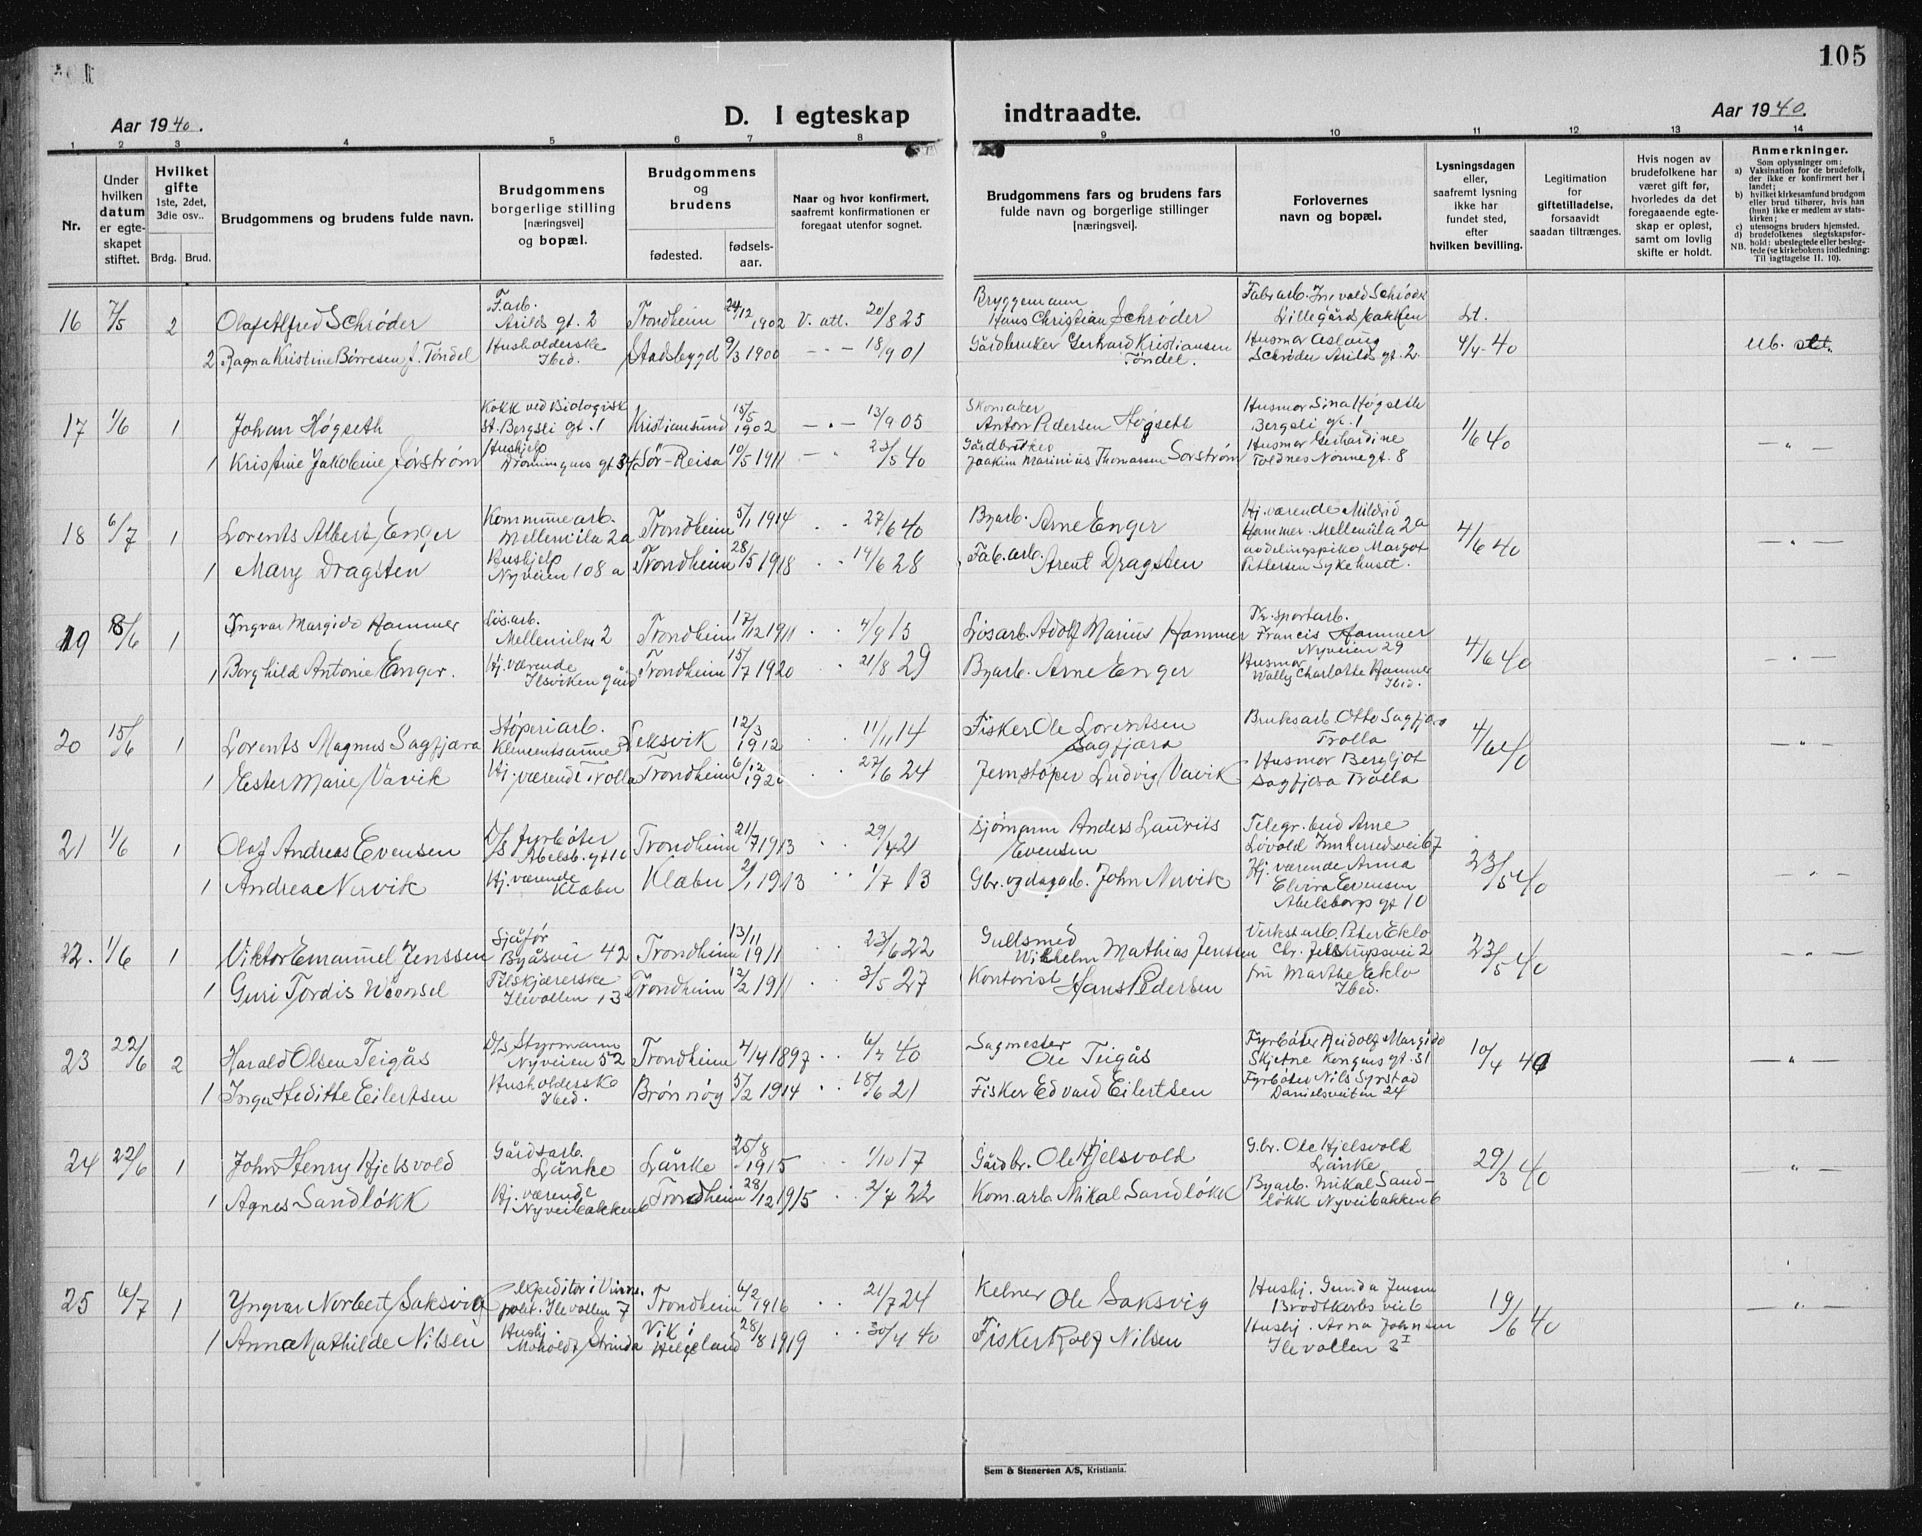 105
Aar 1940.
D. I egteskap indtraadte.
Aar 1940.
1 2 3 4 5 6 7 8 9 10 11 12 13 14
Nr.
Under hvilken datum er egteskapet stiftet.
Hvilket gifte 1ste, 2det, 3die osv..
Brdg. Brud.
Brudgommens og brudens fulde navn.
Brudgommens borgerlige stilling [næringsvei] og bopæl.
Brudgommens og brudens
fødested. fødselsaar.
Naar og hvor konfirmert, saafremt konfirmationen er foregaat utenfor sognet.
Brudgommens fars og brudens fars fulde navn og borgerlige stillinger [næringsvei].
Forlovernes navn og bopæl.
Lysningsdagen eller, saafremt lysning ikke har fundet sted, efter hvilken bevilling.
Legitimation for giftetilladelse, forsaavidt saadan tiltrænges.
Hvis nogen av brudefolkene har været gift før, hvorledes da det foregaaende egteskap er opløst, samt om lovlig skifte er holdt.
Anmerkninger.
Som oplysninger om:
a) Vaksination for de brudefolk, der ikke er konfirmert her i landet;
b) hvilket kirkesamfund brudgom eller brud tilhører, hvis han (hun) ikke er medlem av statskirken;
c) utensogns bruders hjemsted.
d) brudefolkenes slegtskapsforhold: ubeslegtede eller beslegtede (se kirkebokens indledning: Til iagttagelse II. 10).
NB.
16 7/5 2 Olaf Alfred Schrøder F.arb. Arilds gt. 2 Trondheim 24/12 1902 V. att. 20/8 25 Bryggemann Hans Christian Schrøder Fabr.arb. Lillegårdsbakken Lt.
2 Ragna Kristine Børresen f. Tøndel Husholderske Ibid. Stadsbygd 9/3 1900 - " - 18/9 01 Gårdbruker Gerhard Kristiansen Tøndel. Husmor Aslaug Schrøder Arilds gt. 2. 4/4-40 Ub.
17 1/6 1 Johan Høgseth Kokk ved Biologisk St. Bergsli gt. 1 Kristiansund 15/5 1902 - " - 13/9 05 Skomaker Anton Pedersen Høgseth Husmor Sina Høgseth Bergsli gt. 1 1/6 40 - " -
1 Kristine Jakobine Sørstrøm Hushjelp Dronningens gt 34 Sør-Reisa 10/5 1911 - " 23/5 40 Gårdbruker Joakim Marinius Thomassen Sørstrøm Husmor Gerhardine Toldnes Nonnegt. 8
18 6/7 1 Lorents Albert Enger Kommunearb. Mellemila 2a Trondheim 5/1 1914 " " 27/6 40 Byarb. Arne Enger Hj.værende Mildrid Hammer Mellemila 2a 4/6 40 - " -
1 Mary Dragsten Hushjelp Nyveien 108 a Trondheim 28/5 1918 " " 14/6 28 Fab.arb. Arent Dragsten Margot Pettersen Sykehuset.
19 8/6 1 Ingvar Margido Hammer Løsarb. Mellemila 2 Trondheim 17/12 1911 " " 4/9 15 Løsarb. Adolf Marius Hammer Tr.sportarb. Francis Hammer Nyveien 29 4/6 40 - " -
1 Borghild Antonie Enger. Hj.værende Ilsviken gård Trondheim 15/7 1920 " 21/8 29 Byarb. Arne Enger Husmor Wally Charlotte Hammer Ibid.
20 15/6 1 Lorents Magnus Sagfjæra Støperiarb. Leksvik 12/3 1912 " 11/11 14 Fisker Ole Lorentsen Sagfjæra Bruksarb. Otto Sagfjæra Trolla 4/6 40 - " -
1 Ester Marie Vavik Hj.værende Trolla Trondheim 6/12 27/6 24 Jernstøper Ludvig Vavik Husmor Bergljot Sagfjæra Trolla
21 1/6 1 Olaf Andreas Evensen D/S fyrbøter Abelsb.gt 10 Trondheim 21/7 1913 " " 29/4 21 Sjømann Anders Laurits Evensen Telegr.bud Arne Løvold Innherredsvei 67 23/5 40 - " -
1 Andrea Nervik Hj.værende Klæbu Klæbu 2/1 1913 " " 1/7 13 Gbr. og dagarb. John Nervik Hj.værende Anna Elvira Evensen Abelsborgs gt 10
22. 1/6 1 Viktor Emanuel Jenssen Sjåfør Byåsvei 42 Trondheim 13/11 1911 " " 23/6 22 Gullsmed Wilhelm Mathias Jensen Verkst.arb. Peter Eklo Chr. Jelstrupsvei 2 23/5 40 - " -
1 Guri Tordis Tilskjærerske Ilevollen 13 Trondheim 12/2 1911 " " 3/5 27 Kontorist Hans Pedersen fru Marthe Eklo Ibid.
23 22/6 2 Harald Olsen Teigås D/S Styrmann Nyveien 52 Trondheim 4/4 1897 " " 6/7 40 Sagmester Ole Teigås Fyrbøter Reidolf Margido Skjetne Kongens gt. 31 10/4 40 - " -
1 Inga Heditte Eilertsen Husholderske Ibid. Brønnøy 5/2 1914 " " 18/6 21 Fisker Edvard Eilertsen Fyrbøter Nils Syrstad Danielsveiten 24
24 22/6 1 John Henry Hjelsvold Gårdsarb. Lånke Lånke 25/8 1915 " " 1/10 17 Gårdbr. Ole Hjelsvold Gbr. Ole Hjelsvold Lånke 29/3 40 - " -
1 Agnes Sandløkk Hj.værende Nyveibakken 6 Trondheim 28/12 1915 " " 2/7 22 Kom.arb. Mikal Sandløkk Byarb. Mikal Sandløkk Nyveibakken 6
25 6/7 1 Yngvar Norbert Saksvig Expeditør i Vinmonopolet. Ilevollen 7 Trondheim 6/2 1916 " " 21/7 24 Kelner Ole Saksvig Hushj. Gunda Jensen Brodtkorbs vei 6 19/6 40 - " -
1 Anna Mathilde Nilsen Hushj. Moholdt, Strinda Vik i Helgeland 28/8 1919 " " 30/4 40 Fisker Rolf Nilsen Hushj. Anna Johnsen Ilevollen 3 I
Sem & Stenersen A/S, Kristiania.